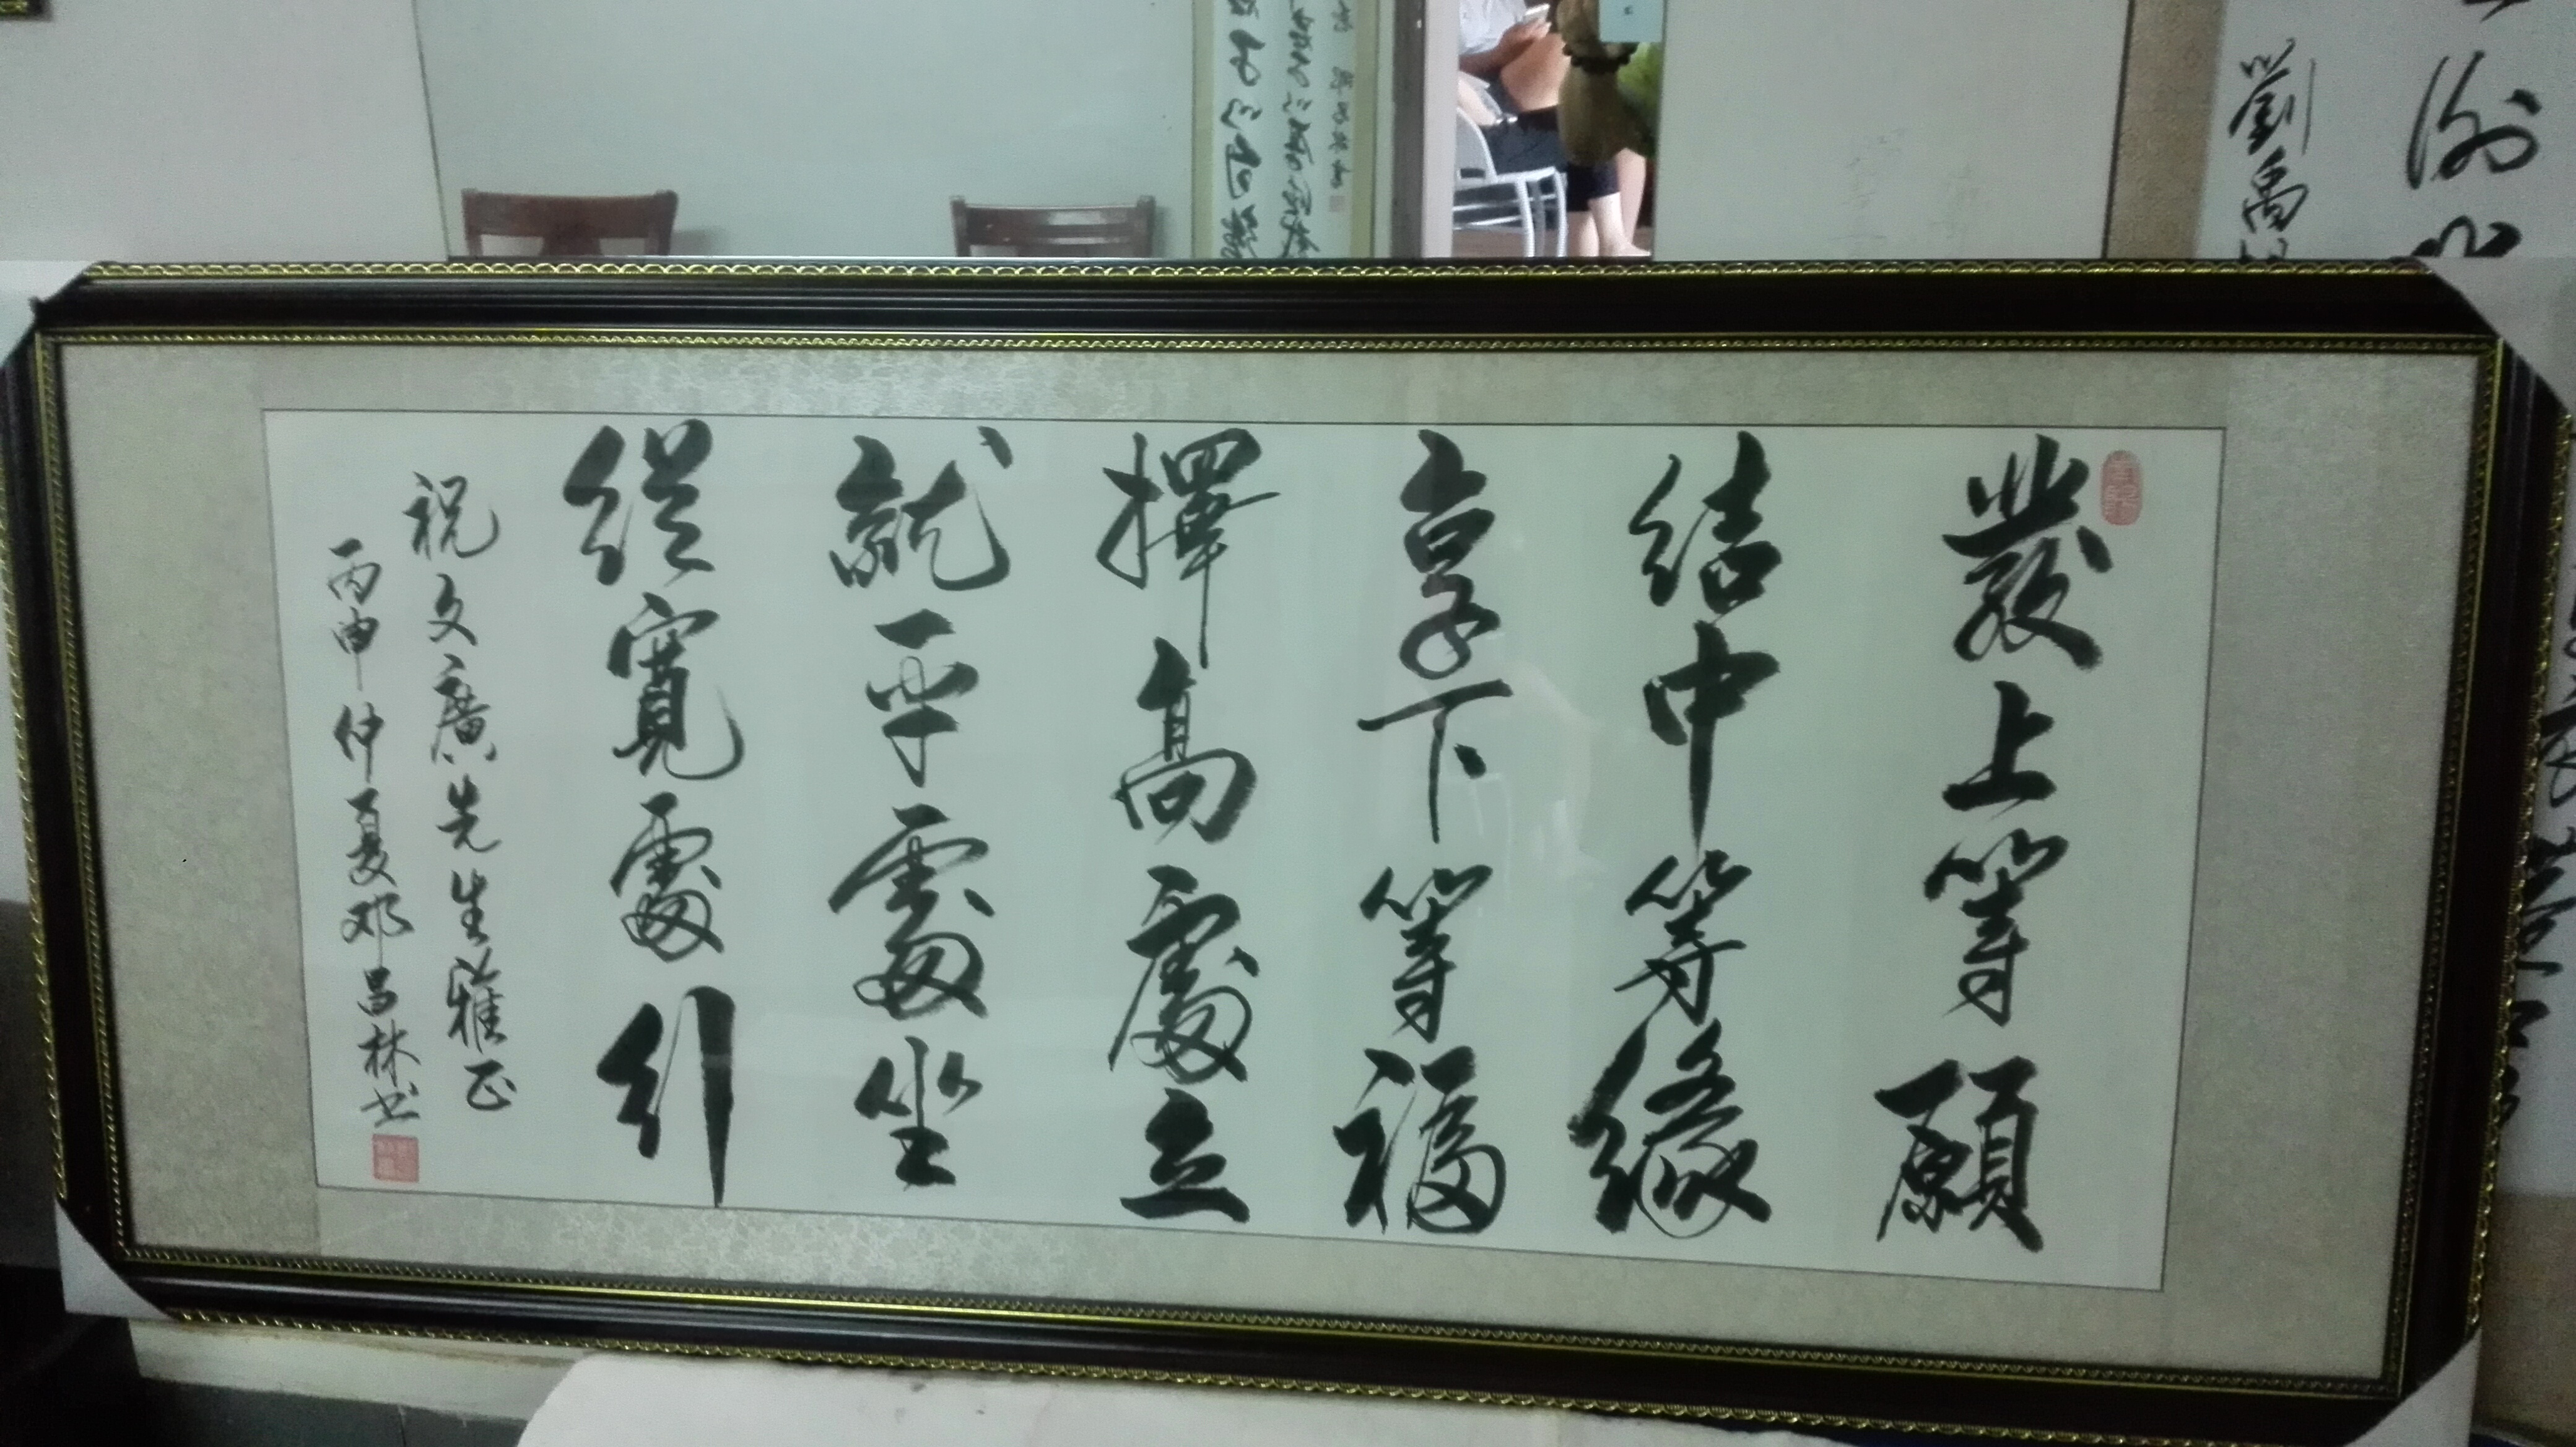 發上等願
結中等緣
享下等福
擇高處立
就平處坐
從寬處行
祝文廣先生雅正
丙申仲夏邓昌林书
劉禹